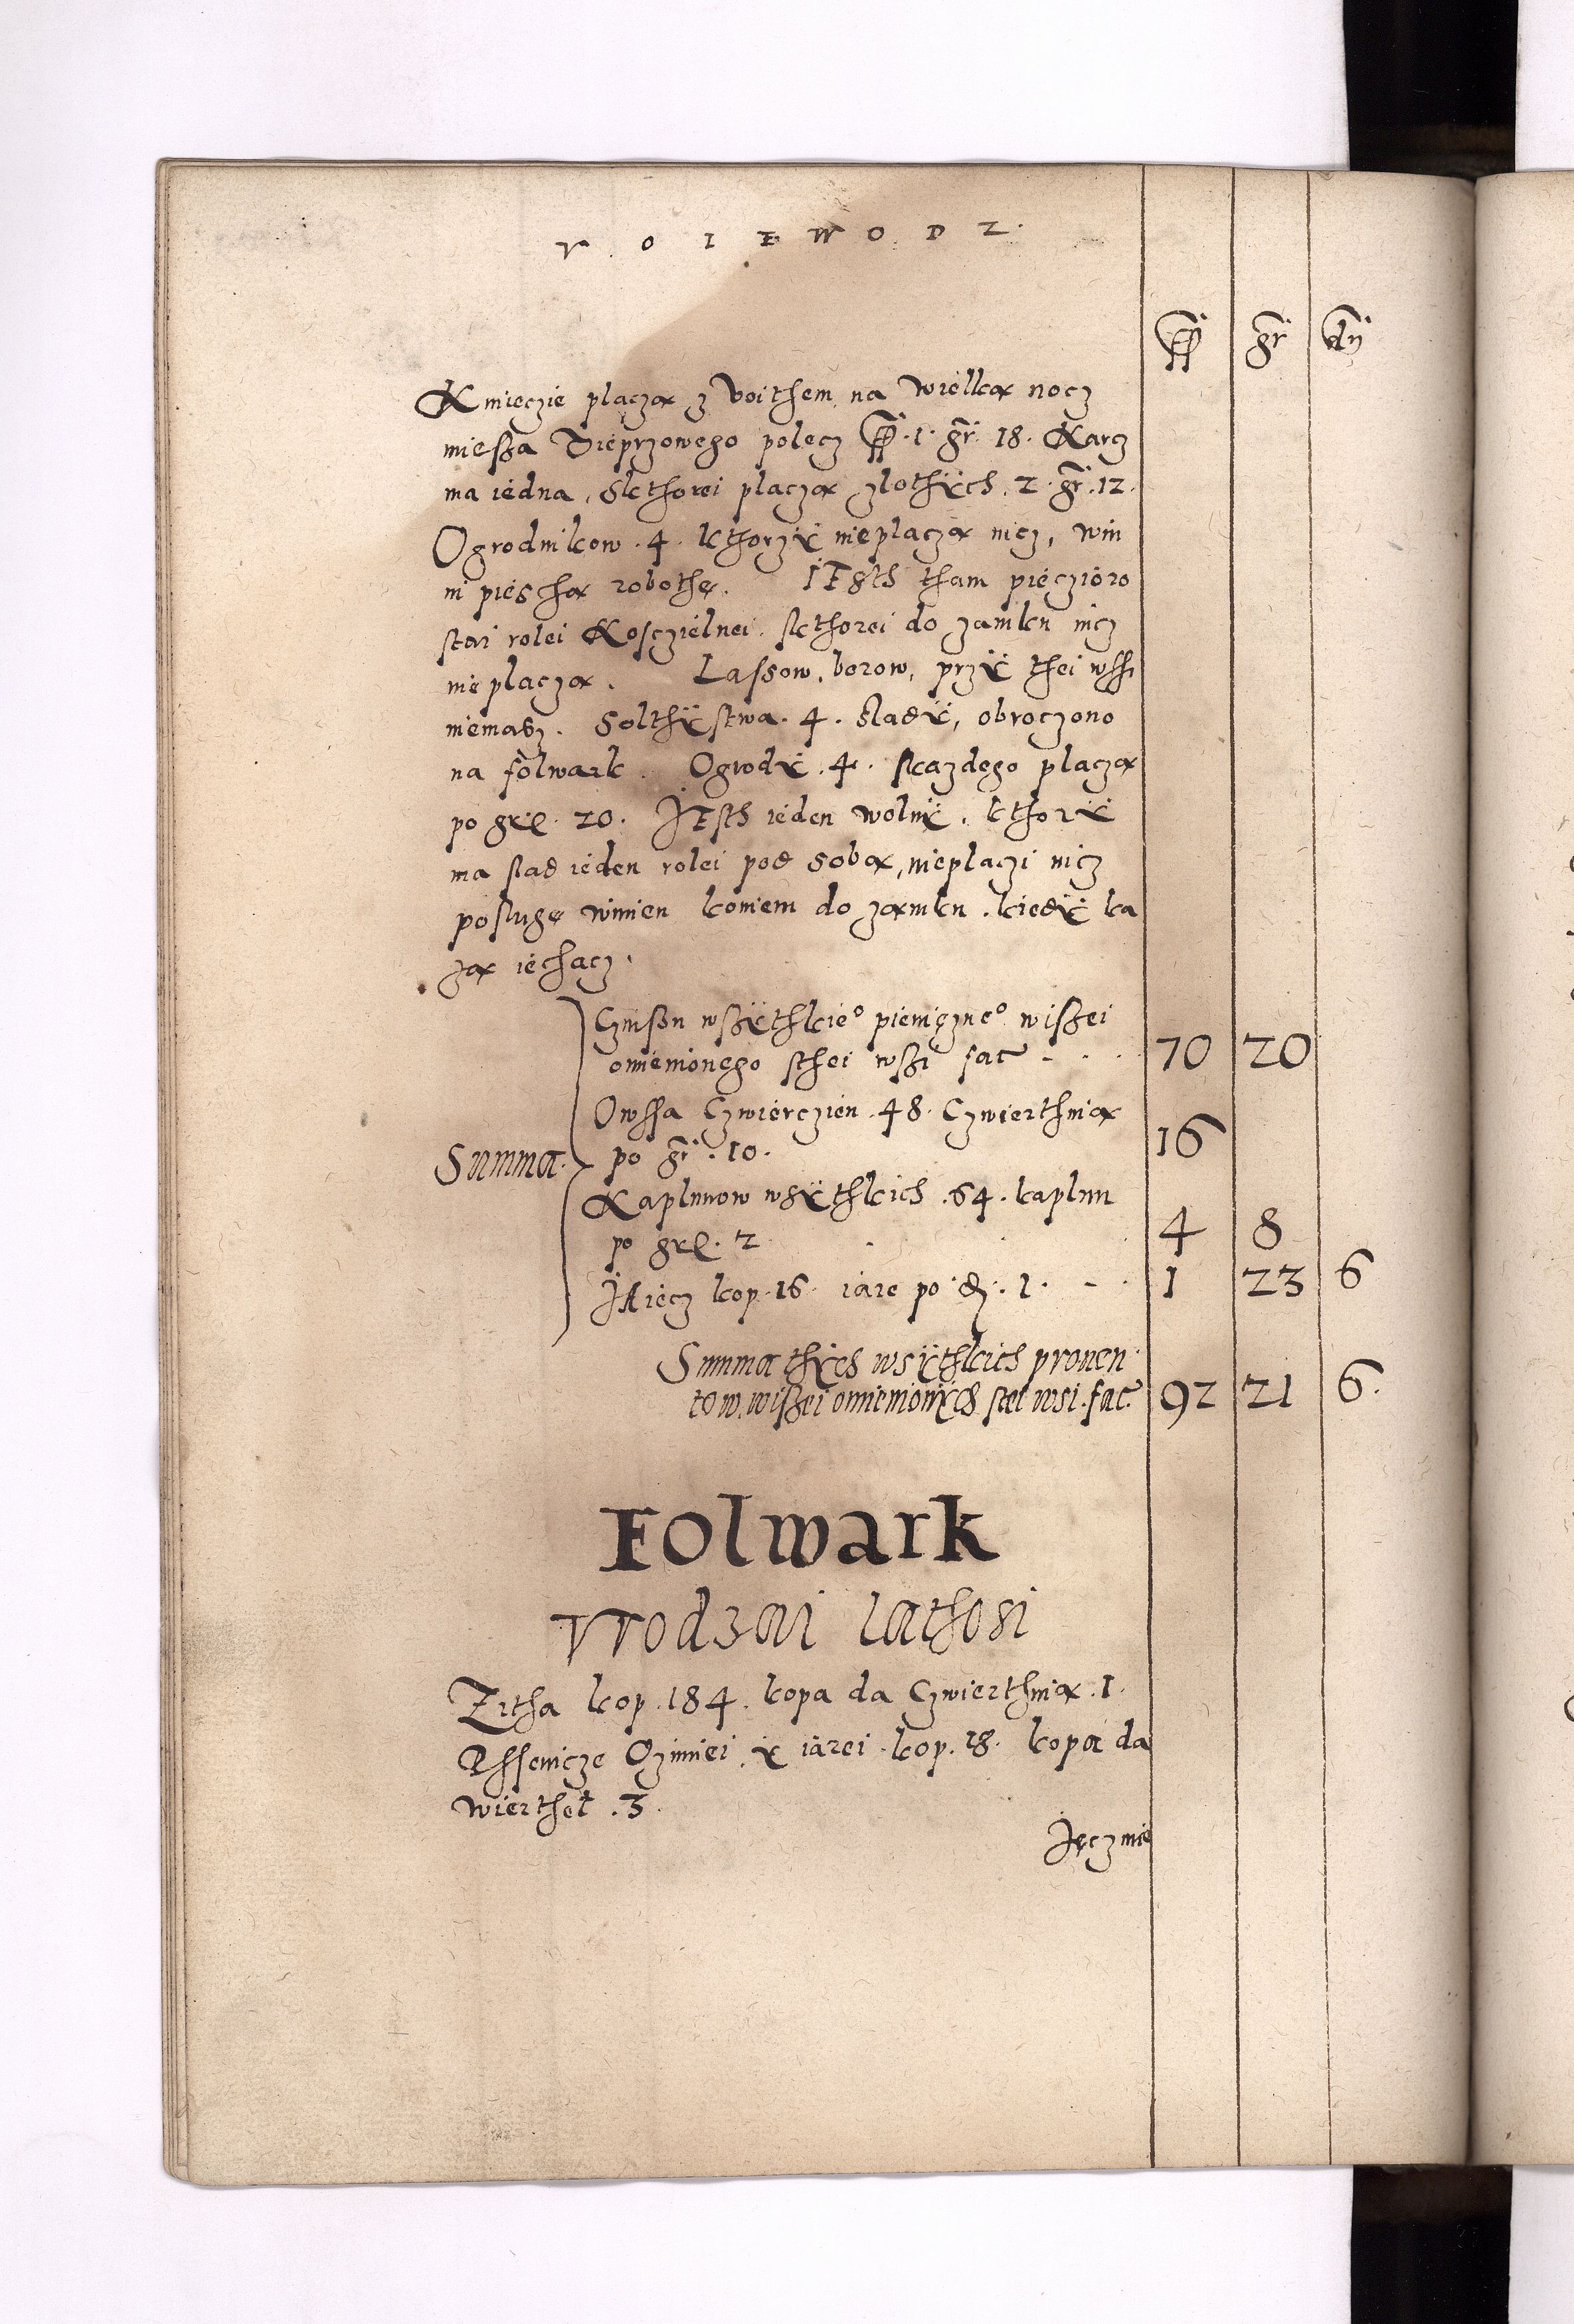 V O I E W O D Z.
fl gr dn
Kmieczie placzą z voithem na wielką nocz
miessa Wieprzowego polecz fl. 1. gr. 18. Karcz
ma iedna, skthorei placzą zlothÿch. 2. gr. 12.
Ogrodnikow. 4. kthorzÿ nieplaczą nicz, win
ni pieschą robothę. IEsth tham pięczioro
stai rolei Kosczielnei. skthorei do zamku nicz
nie placzą. Lassow, borow, przÿ thei wssi
niemasz. Solthÿstwa. 4. sladÿ, obroczono
na folwark. Ogrodÿ. 4. skazdego placzą
po gr. 20. IEsth ieden wolnÿ, kthorÿ
ma slad ieden rolei pod sobą, nieplaczi nicz
posługę winien koniem do zamku. kiedÿ ka
zą iechacz.
Czinszu wszÿthkie° pieniężne° wiszei
omienionego sthei wszi fac - . . 70 20
Owssa Czwierczien. 48. Czwierthnią
po gr. 10. 16
Summa.
Kaplunow wsÿthkich. 64. kaplun
po gr. 2 4 8
IAiecz kop. 16. iaie po d. 1. - . 1 23 6
Summa thÿch wsÿthkich prouen
tow. wiszei omienionÿch stei wsi. fac. 92 21 6.
Folwark
Vrodzai lathosi
Zitha kop. 184. kopa da Czwierthnią. 1.
Pssenicze Ozimiei. ÿ iarei. kop. 18. kopa da
wierthel. 3.
Jęczmie